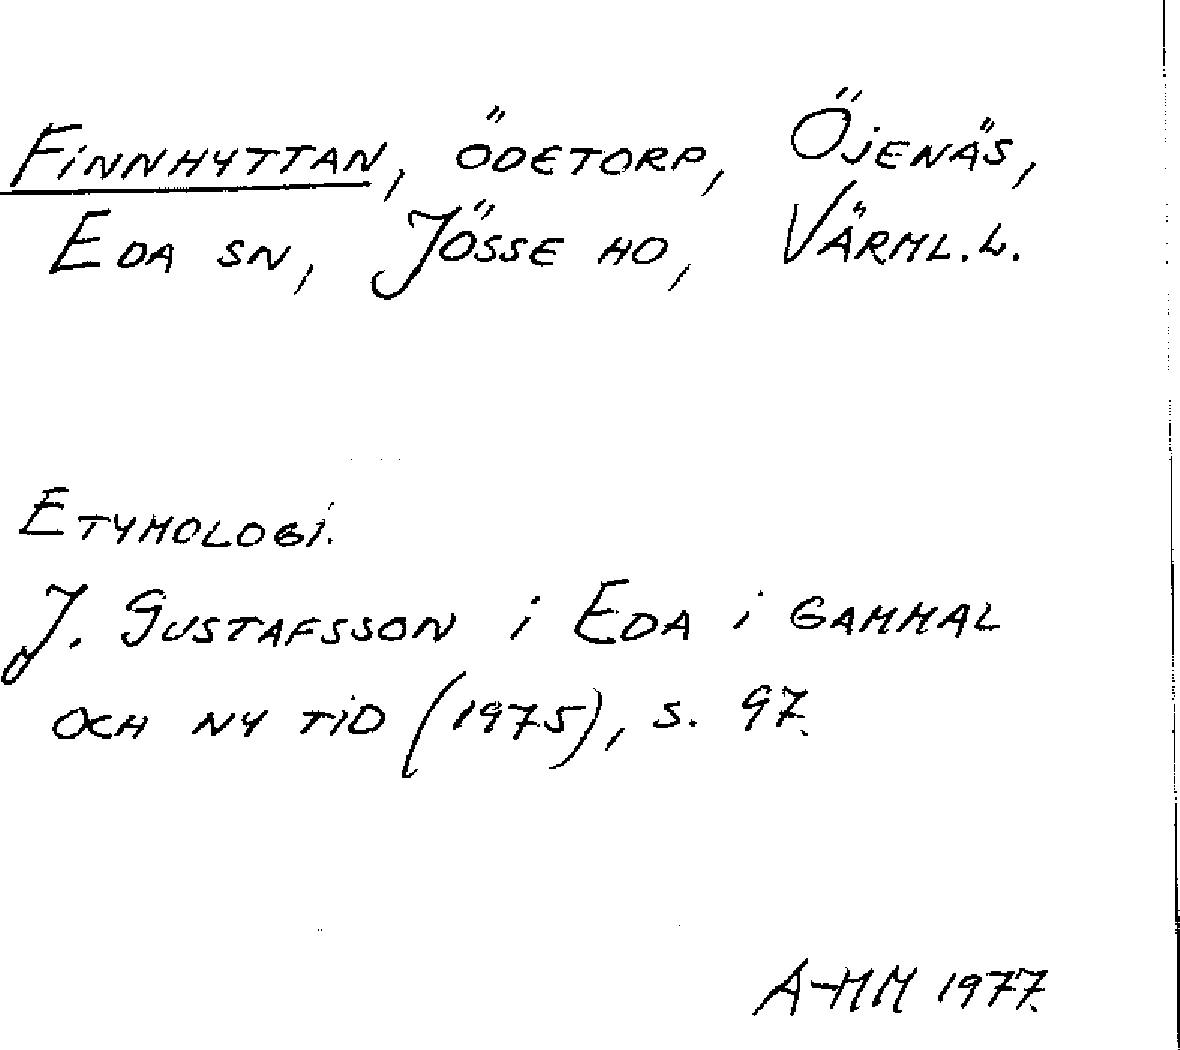 FINNHYTTAN, ÖDETORP, ÖJENÄS,
EDA SN, JÖSSE HD, VÄRML.L.
ETYMOLOGI.
J. GUSTAFSSON i EDA i GAMMAL
OCH NY TID (1975), S. 97.
A-MM 1977.